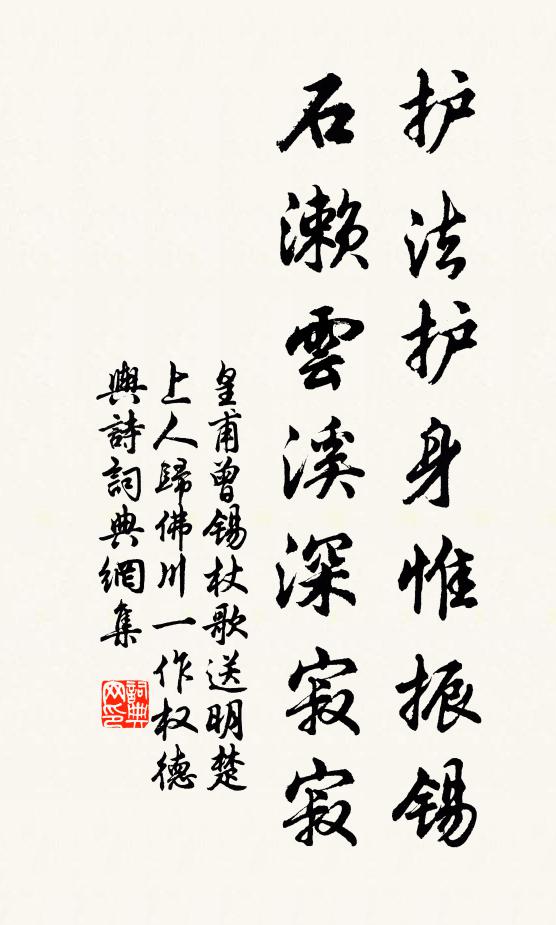 护法护身惟振锡
石濑雲溪深寂寂
皇甫曾锡杖歌送明楚
上人歸佛川一作权德
輿詩詞典網集
詞典网印